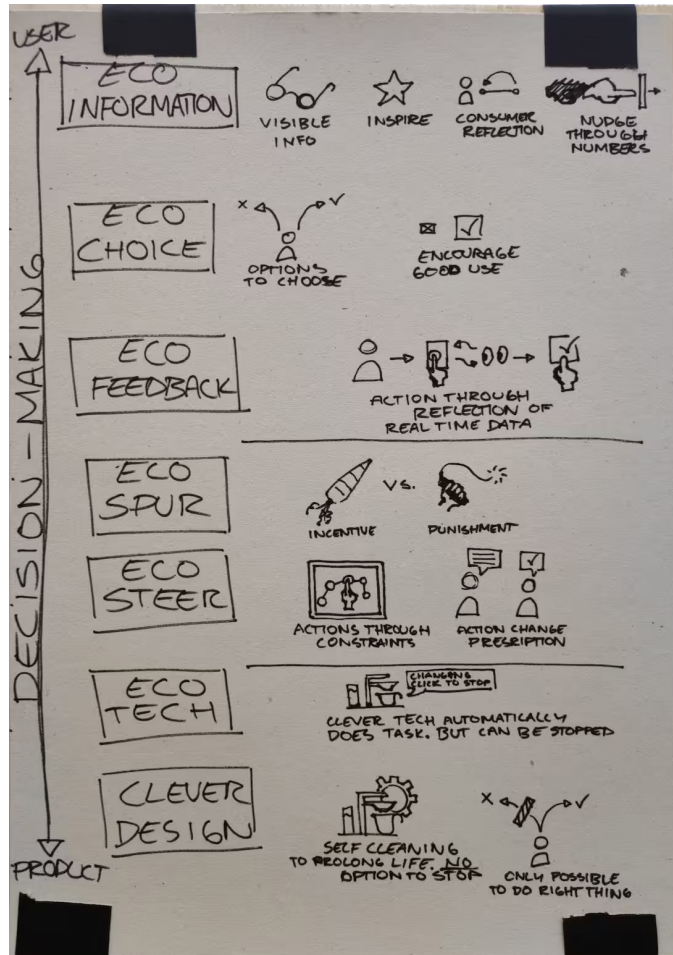 USER
ECO
INFORMATION
VISIBLE
INFO
INSPIRE
CONSUMER
REFLECTION
NUDGE
THROUGH
NUMBERS
DECISION-MAKING
ECO
CHOICE
OPTIONS
TO CHOOSE
ENCOURAGE
GOOD USE
ECO
FEEDBACK
ACTION THROUGH
REFLECTION OF
REAL TIME DATA
ECO
SPUR
VS.
INCENTIVE
PUNISHMENT
ECO
STEER
ACTIONS THROUGH
CONSTRAINTS
ACTION CHANGE
PRESRIPTION
ECO
TECH
CHANGING
CLICK TO STOP
CLEVER TECH AUTOMATICALLY
DOES TASK. BUT CAN BE STOPPED
CLEVER
DESIGN
SELF CLEANING
TO PROLONG LIFE. NO
OPTION TO STOP
ONLY POSSIBLE
TO DO RIGHT THING
PRODUCT